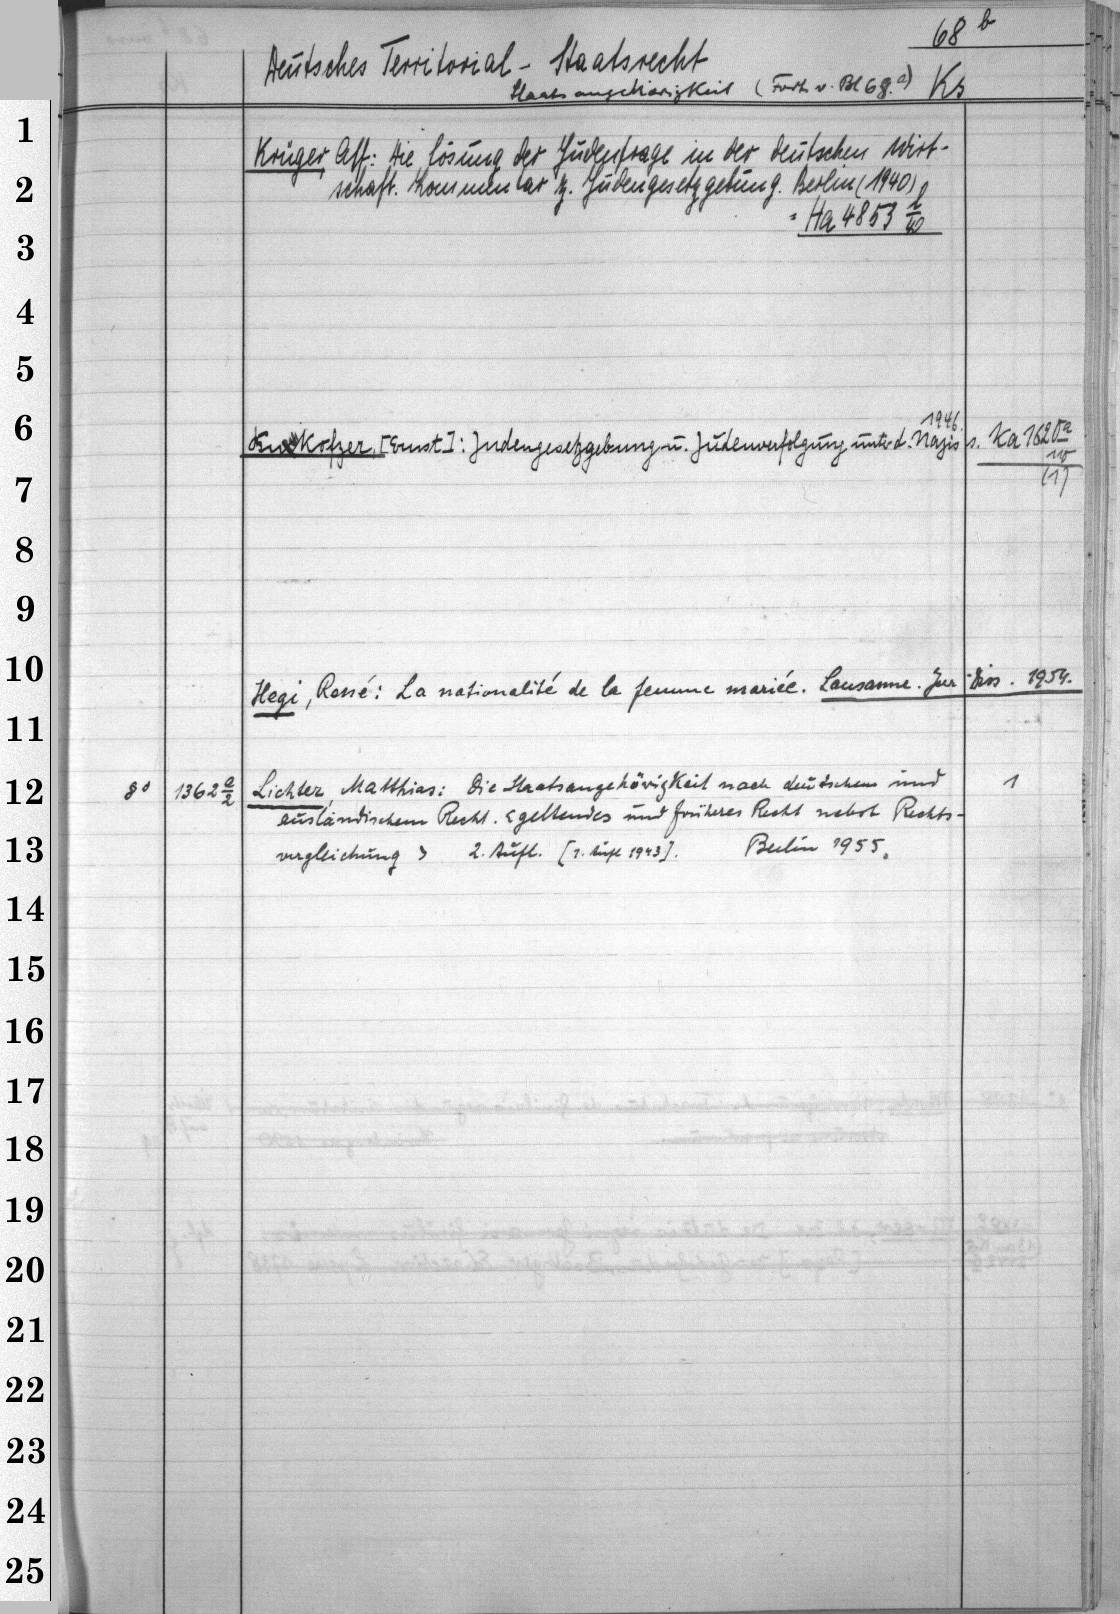 68 b
Deutsches Territorial - Staatsrecht
Staatsangehörigkeit (Forts. v. Bl 68.a) Ks
1
Krüger, Alf: Die Lösung der Judenfrage in der deutschen Wirt-
2
schaft. Kommentar z. Judengesetzgebung. Berlin (1940)
= Ha 4853
3
4
5
6
1946.
Kofzer, [Ernst]: Judengesetzgebung u. Judenverfolgung unter d. Nazis s. Ka 1620 a
(1)
7
8
9
10
Hegi, René: La nationalité de la femme mariée. Lausanne. Jur. Diss. 1954.
11
12
8° 1362 a/2 Lichter, Matthias: Die Staatsangehörigkeit nach deutschem und 1
ausländischem Recht. <geltendes und früheres Recht nebst Rechts-
13
vergleichung> 2. Aufl. [1. Aufl 1943]. Berlin 1955.
14
15
16
17
18
19
20
21
22
23
24
25